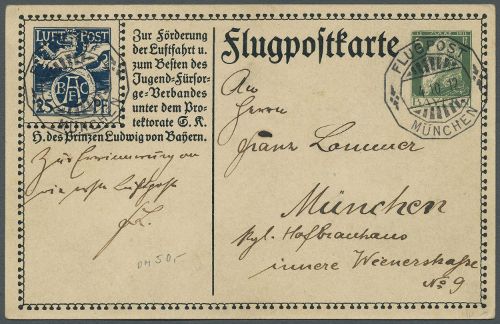 LUFT POST
BAC
25 PF.
Zur Förderung
der Luftfahrt u.
zum Besten des
Jugend-Fürsor-
ge-Verbandes
unter dem Pro-
tektorate S. K.
H. des Prinzen Ludwig von Bayern.
Zur Erinnerung an
die erste Luftpost
DM 50,-
Flugpostkarte
FLUGPOST
10. 12
BAYERN
MÜNCHEN
An
Herrn
Franz Lommer
München
Kgl. Hofbräuhaus
innere Wienerstraße
No 9